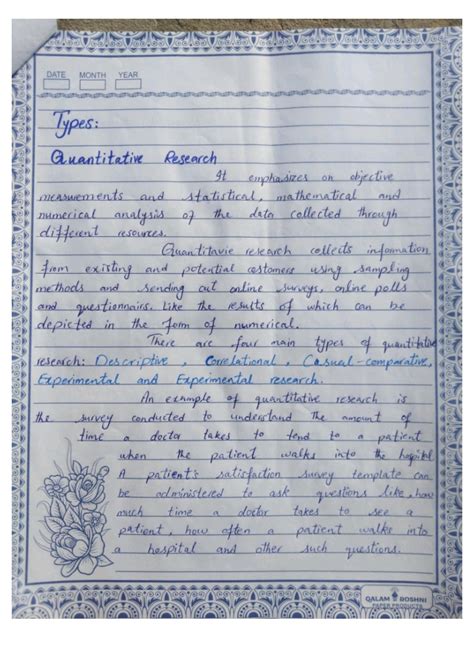 DATE MONTH YEAR
Types:
Quantitative Research
It emphasizes on objective
measurements and statistical, mathematical and
numerical analysis of the data collected through
different resources.
Quantitavie research collects information
from existing and potential costomers using sampling
methods and sending out online surveys, online polls
and questionnairs. Like the results of which can be
depicted in the form of numerical.
There are four main types of quantitative
research: Descriptive, Correlational, Casual-comparative,
Experimental and Experimental research.
An example of quantitative research is
the survey conducted to understand the amount of
time a doctor takes to tend to a patient
when the patient walks into the hospital
A patient's satisfaction survey template can
be administered to ask questions like, how
much time a doctor takes to see a
patient, how often a patient walks into
a hospital and other such questions.
QALAM ROSHNI
PAPER PRODUCTS